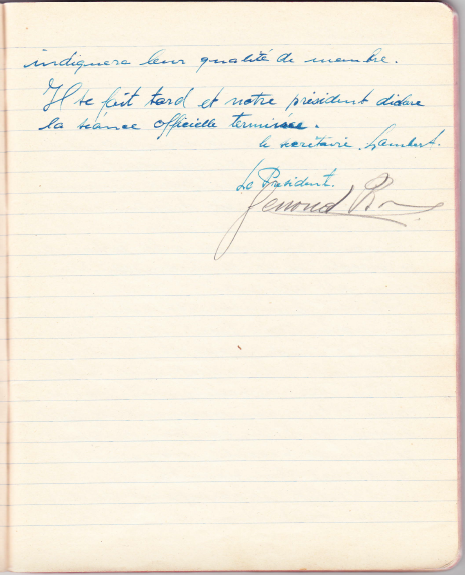 indiquera leur qualité de membre.
Il se fait tard et notre président déclare
la séance officielle terminée.
le secrétaire. Lambert.
Le Président.